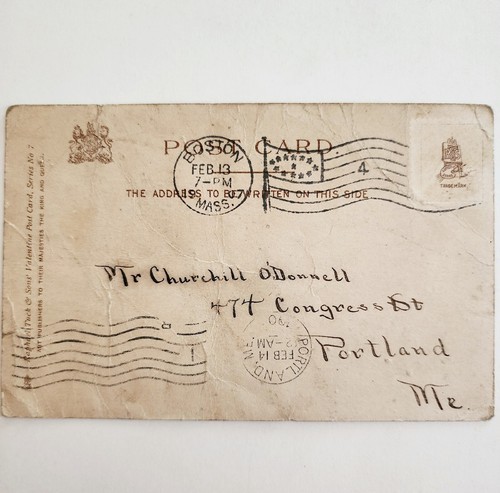 POST CARD
THE ADDRESS TO BE WRITTEN ON THIS SIDE
BOSTON
FEB 13
7-PM
MASS.
4
TRADE MARK
Raphael Tuck & Sons' Valentine Post Card, Series No 7
ART PUBLISHERS TO THEIR MAJESTIES THE KING AND QUEEN
Mr Churchill O'Donnell
474 Congress St
Portland
Me.
PORTLAND, M
FEB 14
-AM